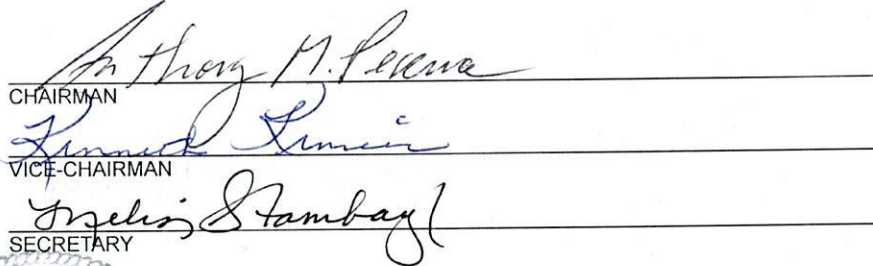 Anthony M.
CHAIRMAN
Kenneth
VICE-CHAIRMAN
Melissa Stambaugh
SECRETARY